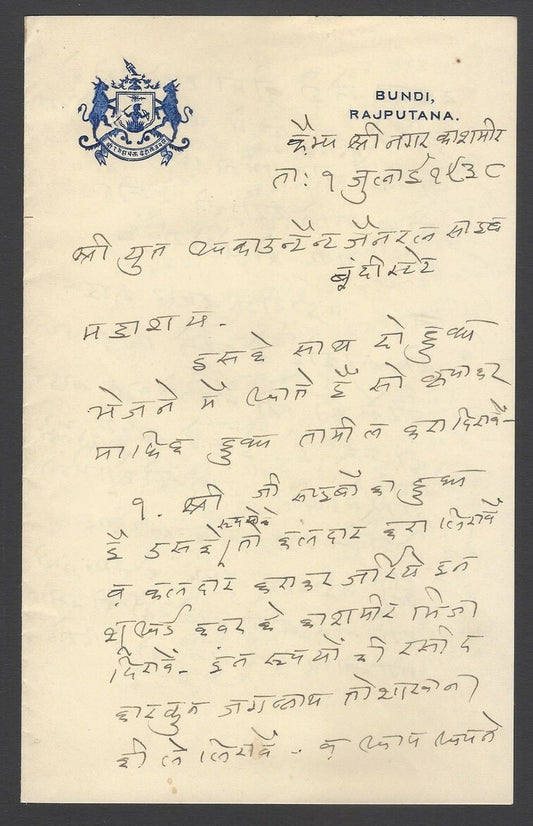 BUNDI,
RAJPUTANA.
कैम्प श्रीनगर काशमीर
ता: १ जुलाई १९३८
श्री युत अकाउन्टैन्ट जैनरल साहब
बूंदी स्टेट
महाशय.
इसके साथ दो हुक्म
भेजने में आते है सो कृपाकर
माफिक हुक्म तामील करा दिरावें-
१. श्री जी साहबों का हुक्म
है इसके रुपयों के तो कलदार करा लिरावें
व कलदार कराकर जरिये इन
काशमीर भिजा
दिरावें- इन रुपयों की रसीद
कारकुन जगन्नाथ तोशाखाना
की ले लिरावें - व आप अपने